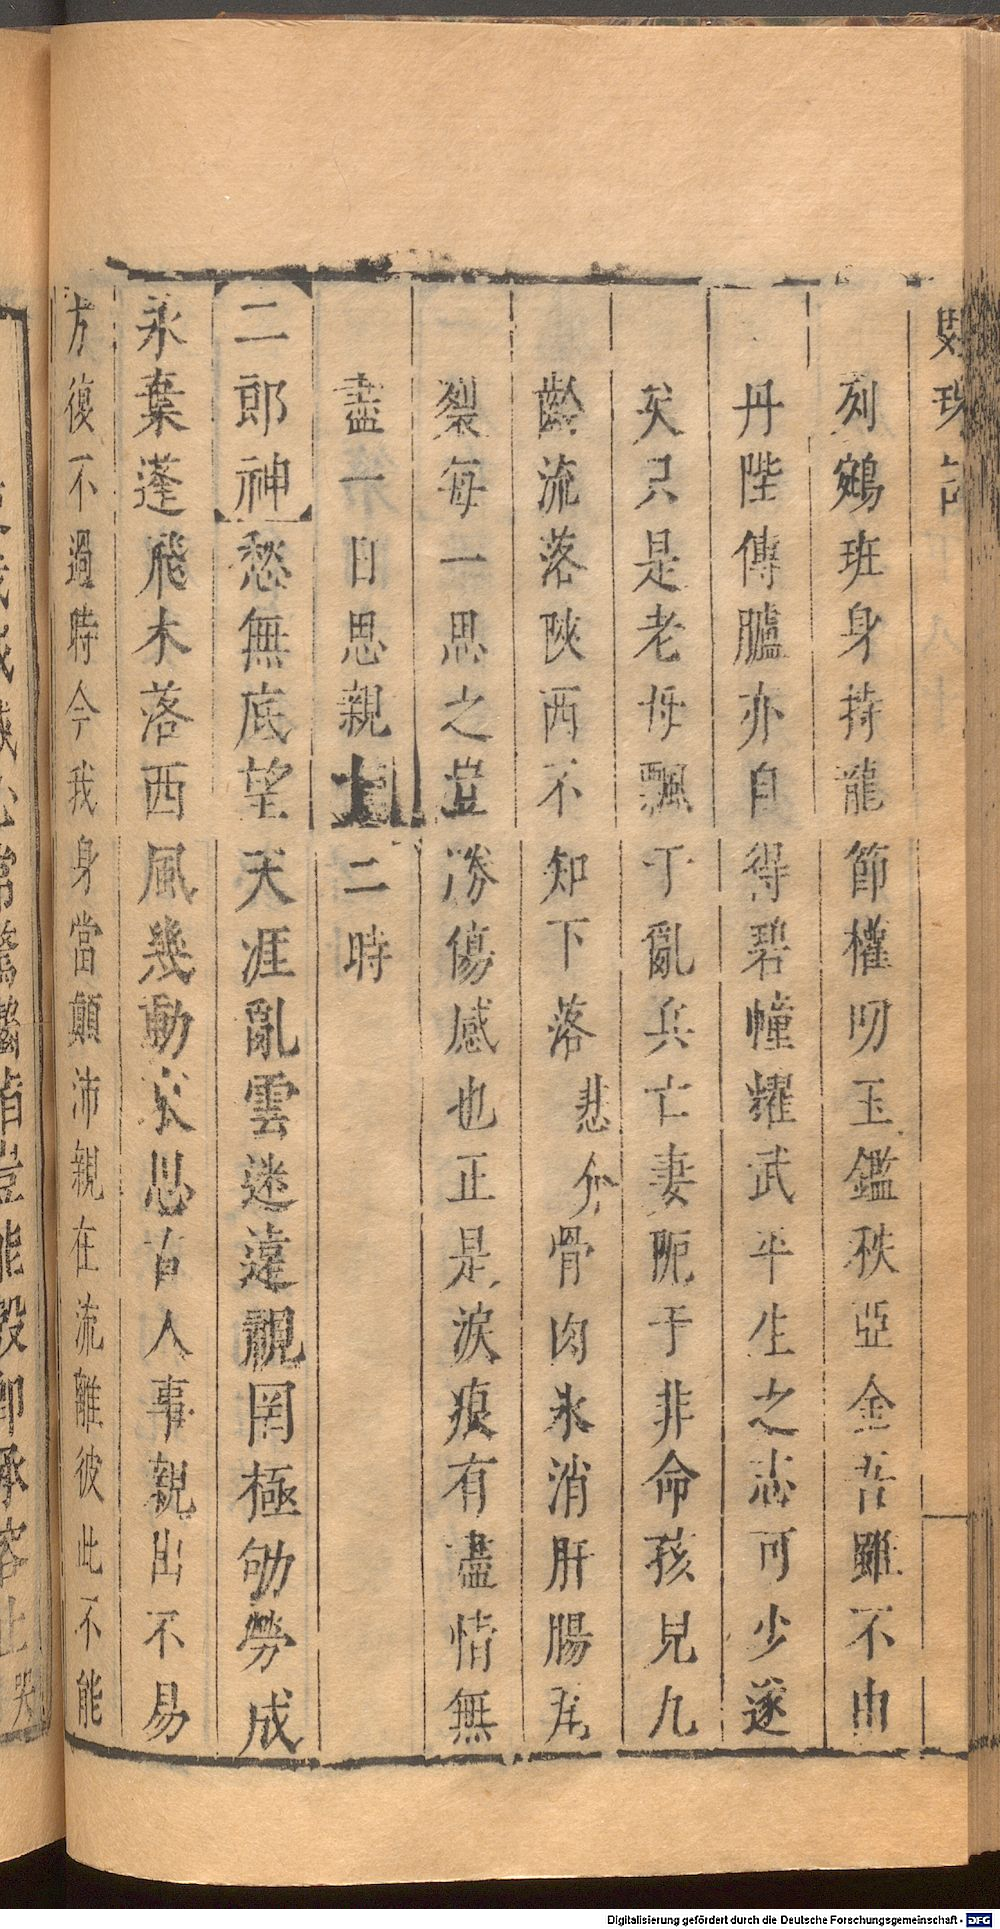 列鵷班身持龍節權叨玉鑑秩亞金吾雖不由
丹陛傳臚亦自得碧幢耀武平生之志可少遂
矣只是老母飄于亂兵亡妻阨于非命孩兒九
齡流落陝西不知下落悲介骨肉氷消肝腸瓦
裂每一思之豈勝傷感也正是淚痕有盡情無
盡一日思親十二時
二郎神愁無底望天涯亂雲迷遶親罔極劬勞成
永葉蓬飛木落西風幾動哀思百人事親出不易
方復不過時今我身當顛沛親在流離彼此不能
Digitalisierung gefördert durch die Deutsche Forschungsgemeinschaft - DFG